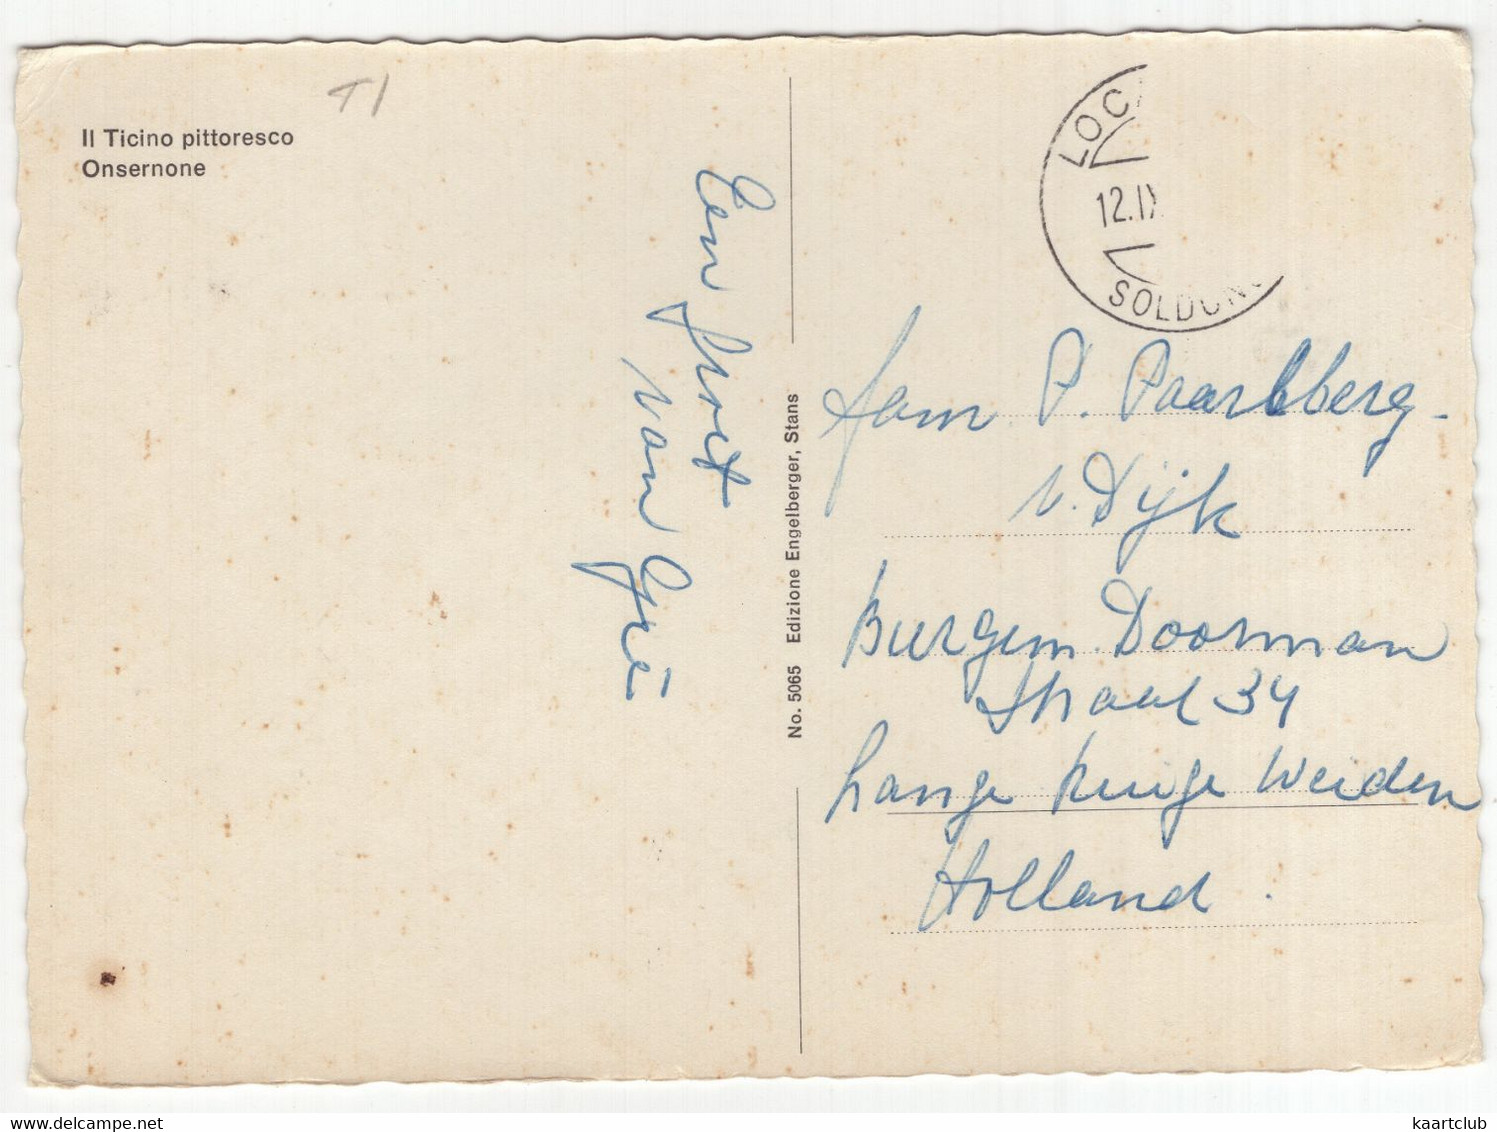 T/
Il Ticino pittoresco
Onsernone
Een groet
van Gré
No. 5065 Edizione Engelberger, Stans
LOCA
12.IX
SOLDUNO
fam P. Paarlberg -
v. Dijk
Burgem. Doorman
straat 34
Lange Ruige Weiden
Holland.
kaartclub